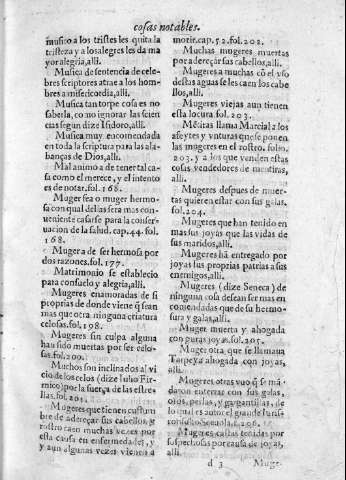 cosas notables.
musico a los tristes les quita la
tristeza y a los alegres les da ma
yor alegria, alli.
Musica de sentencia de cele-
bres scriptores atrae a los hom-
bres a misericordia, alli.
Musica tan torpe cosa es no
saberla, como ignorar las scien
cias segun dize Isidoro, alli.
Musica muy encomendada
en toda la scriptura para las ala-
banças de Dios, alli.
Mal animo a de tener tal ca-
sa como el merecer, y el intento
es de notar. fol. 168.
Muger fea o muger hermo-
sa con qual dellas sera mas con-
ueniente casarse para la conser-
uacion de la salud. cap. 44. fol.
168.
Muger a de ser hermosa por
dos razones. fol. 177.
Matrimonio se establecio
para consuelo y alegria, alli.
Mugeres enamoradas de si
proprias de donde viene q̃ sean
mas que otra ninguna criatura
celosas. fol. 198.
Mugeres sin culpa alguna
han sido muertas por ser celo-
sas. fol. 200.
Muchos son inclinados al vi
cio de los celos (dize Iulio Fir-
mico) por la fuerça de las estre-
llas. fol. 201.
Mugeres que tienen custum
bre de adereçar sus cabellos, y
rostro caen muchas vezes por
esta causa en enfermedades, y
y aun algunas vezes vienen a
morir. cap. 52. fol. 202.
Muchas mugeres muertas
por adereçar sus cabellos, alli.
Mugeres a muchas cõ el vso
destas aguas se les caen los cabe
llos, alli.
Mugeres viejas aun tienen
esta locura fol. 203.
llama Marcial a los
afeytes y vnturas que se ponen
las mugeres en el rostro. folio.
203. y a los que venden estas
cosas vendedores de mentiras,
alli.
Mugeres despues de muer-
tas quieren estar con sus galas.
fol. 204.
Mugeres que han tenido en
mas sus joyas que las vidas de
sus maridos, alli.
Mugeres hã entregado por
joyas sus proprias patrias a sus
enemigos, alli.
Mugeres (dize Seneca) de
ninguna cosa desean ser mas en
comendadas que de su hermo-
sura y galas, alli.
Muger muerta y ahogada
con puras joyas. fol. 205.
Muger otra, que se llamaua
Tarpeya ahogada con joyas,
alli.
Mugeres otras vuo q̃ se mã-
daron enterrar con sus galas,
oros, perlas, y gargantillas, de
lo qual es autor el grande Iuris-
consulto Sceuola. f. 206.
Mugeres castas tenidas por
sospechosas por causa de joyas,
alli.
d 3 Muge-